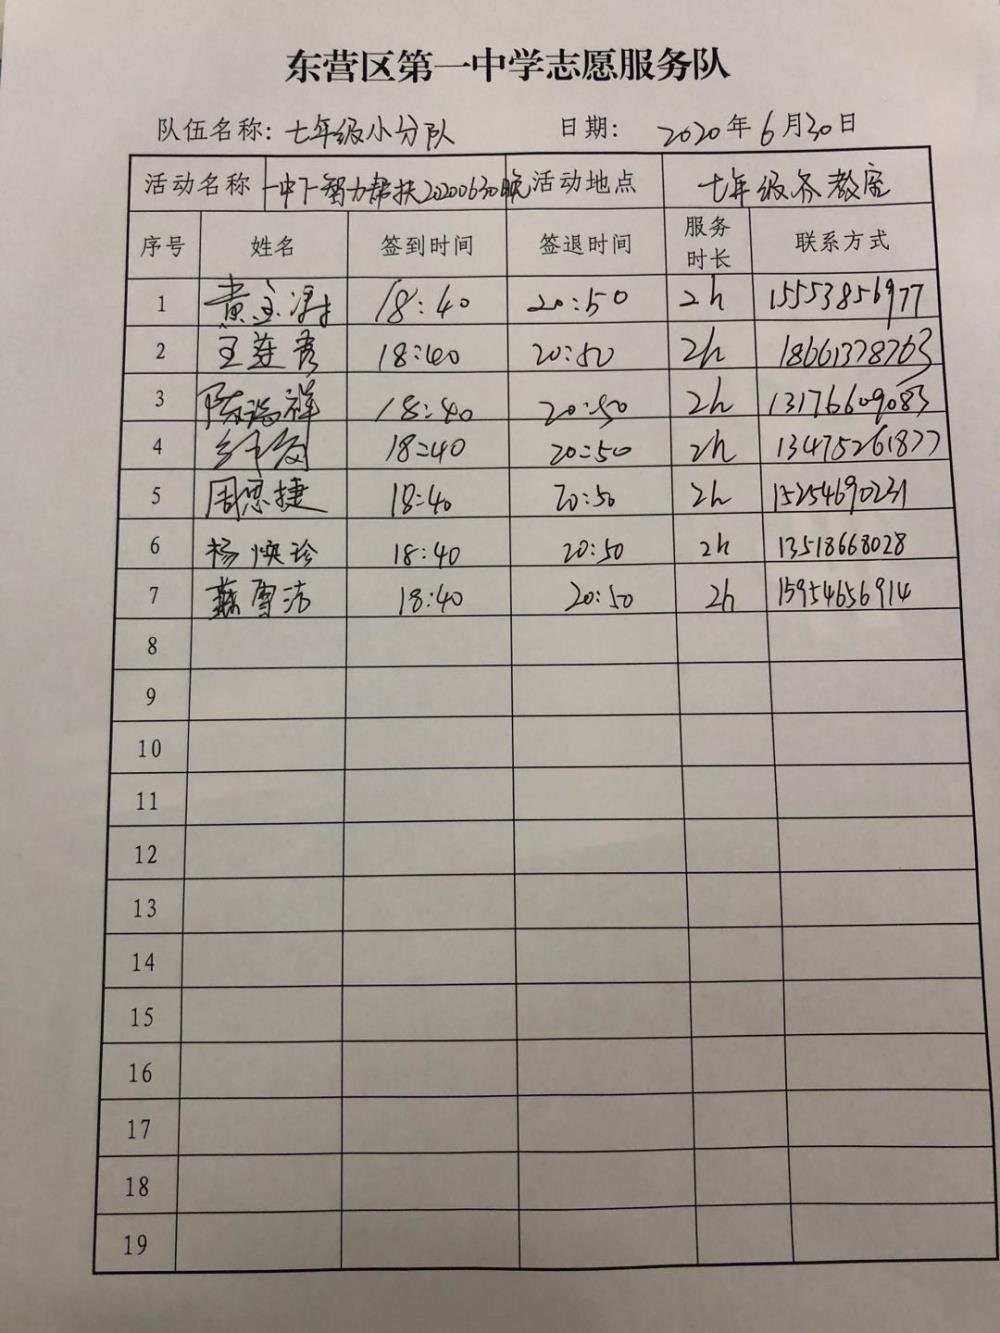 东营区第一中学志愿服务队
队伍名称: 七年级小分队 日期: 2020年6月30日
活动名称 一中下智力帮扶20200630晚 活动地点 七年级各教室
序号 姓名 签到时间 签退时间 服务时长 联系方式
1 黄 18:40 20:50 2h 15553856977
2 王莲秀 18:40 20:50 2h 18661378763
3 陈瑞祥 18:40 20:50 2h 13176609083
4 18:40 20:50 2h 13475261877
5 周思捷 18:40 20:50 2h 15254690231
6 杨焕珍 18:40 20:50 2h 13518668028
7 苏雪洁 18:40 20:50 2h 15954656914
8
9
10
11
12
13
14
15
16
17
18
19